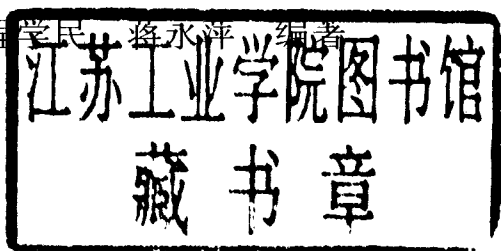 学民 蒋永萍 编著
江苏工业学院图书馆
藏书章